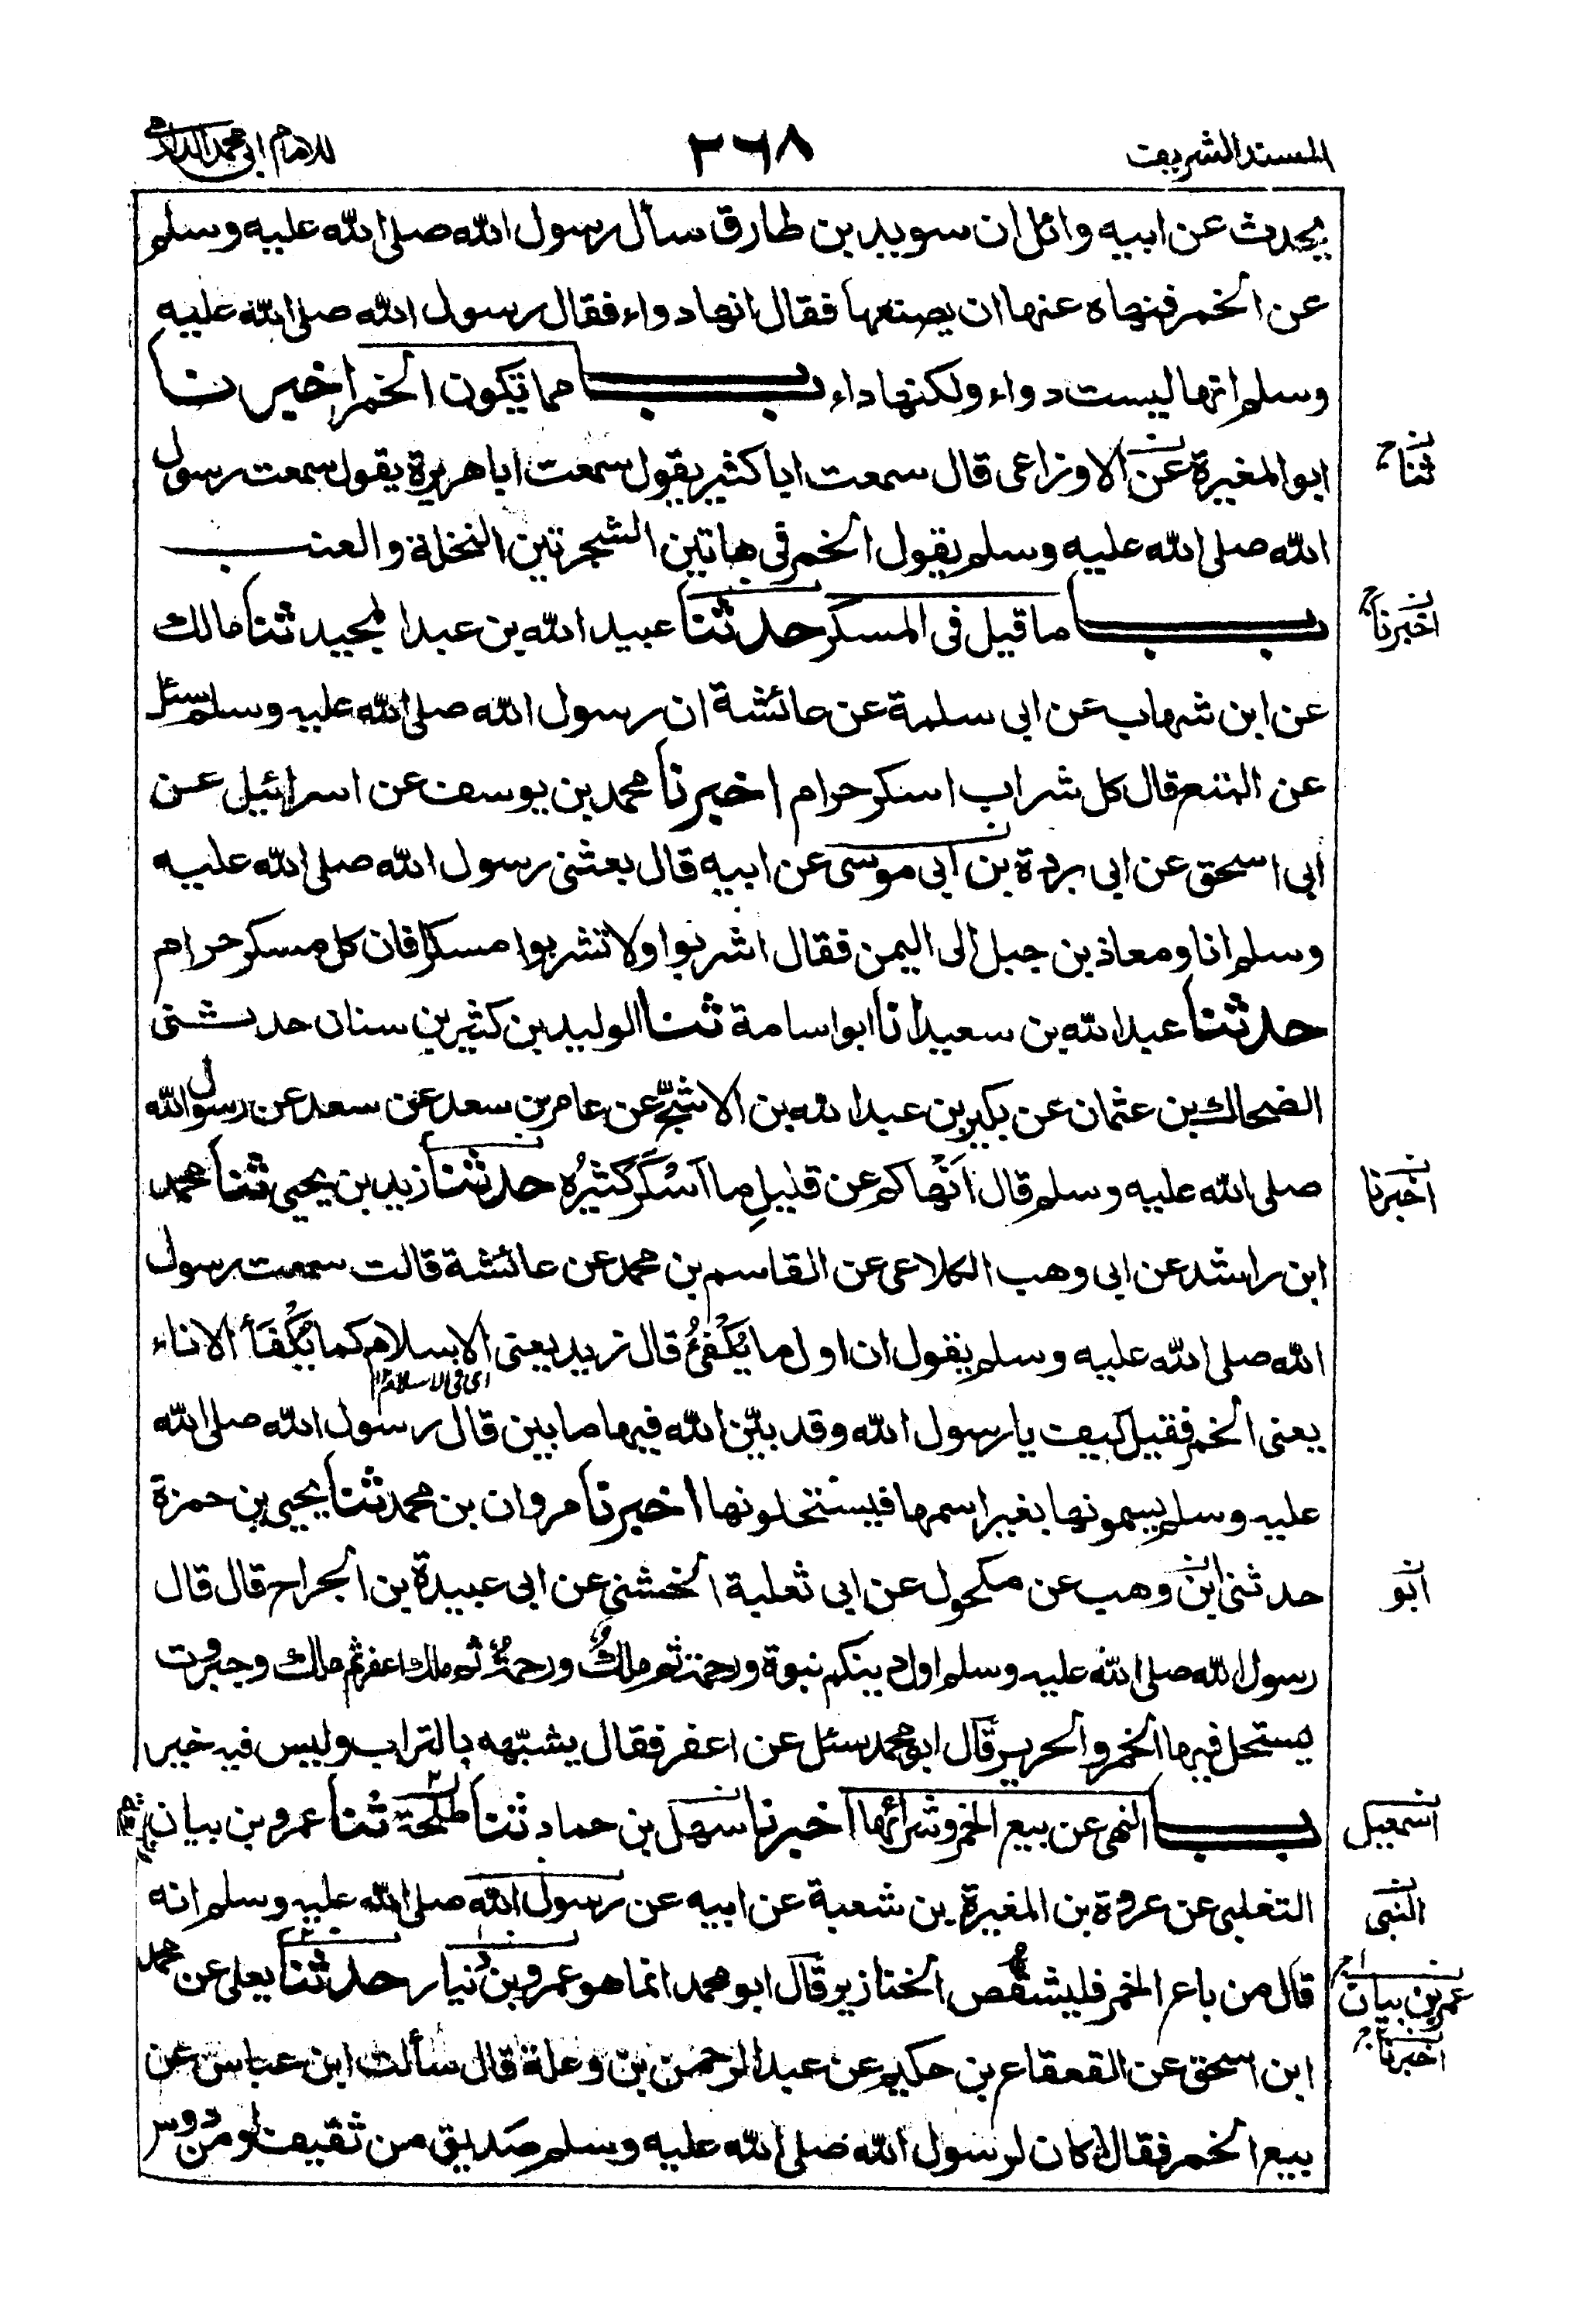 المسند الشريف
٢٦٨
للامام ابى محمد الدارمى
يحدث عن ابيه وائل ان سويد بن طارق سأل رسول الله صلى الله عليه وسلم
عن الخمر فنهاه عنها ان يصنعها فقال انها دواء فقال رسول الله صلى الله عليه
وسلم انها ليست دواء ولكنها داء باب مما تكون الخمر اخبرنا
ابو المغيرة عن الاوزاعى قال سمعت ابا كثير يقول سمعت ابا هريرة يقول سمعت رسول
الله صلى الله عليه وسلم يقول الخمر فى هاتين الشجرتين النخلة والعنب
باب ما قيل فى المسكر حدثنا عبيد الله بن عبد المجيد ثنا مالك
عن ابن شهاب عن ابى سلمة عن عائشة ان رسول الله صلى الله عليه وسلم سئل
عن البتع قال كل شراب اسكر حرام اخبرنا محمد بن يوسف عن اسرائيل عن
ابى اسحق عن ابى بردة بن ابى موسى عن ابيه قال بعثنى رسول الله صلى الله عليه
وسلم انا ومعاذ بن جبل الى اليمن فقال اشربوا ولا تشربوا مسكرا فان كل مسكر حرام
حدثنا عبد الله بن سعيد انا ابو اسامة ثنا الوليد بن كثير بن سنان حدثنى
الضحاك بن عثمان عن بكير بن عبد الله بن الاشجّ عن عامر بن سعد عن سعد عن رسول الله
صلى الله عليه وسلم قال اَنْهاكم عن قليلِ ما اَسْكَرَ كَثيرُه حدثنا زيد بن يحيى ثنا محمد
ابن راشد عن ابى وهب الكلاعى عن القاسم بن محمد عن عائشة قالت سمعت رسول
الله صلى الله عليه وسلم يقول ان اول ما يُكْفَئُ قال زيد يعنى الاسلام كما يُكْفَأ الاناء
اى فى الاسلام ١٢
يعنى الخمر فقيل كيف يا رسول الله وقد بيّن الله فيها ما بين قال رسول الله صلى الله
عليه وسلم يسمونها بغير اسمها فيستحلونها اخبرنا مروان بن محمد ثنا يحيى بن حمزة
حدثنى ابن وهب عن مكحول عن ابى ثعلبة الخشنى عن ابى عبيدة بن الجراح قال قال
رسول الله صلى الله عليه وسلم اول دينكم نبوة ورحمة ثم ملكٌ ورحمةٌ ثم ملك اعفر ثم ملك وجبروت
يستحل فيها الخمر والحرير قال ابو محمد سئل عن اعفر فقال يشبّهه بالتراب وليس فيه خير
باب النهى عن بيع الخمر وشرائها اخبرنا سهل بن حماد ثنا طلحة ثنا عمرو بن بيان
التغلبى عن عروة بن المغيرة بن شعبة عن ابيه عن رسول الله صلى الله عليه وسلم انه
قال من باع الخمر فليشقّص الخنازير قال ابو محمد انما هو عمرو بن دينار حدثنا يعلى عن محمد
ابن اسحق عن القعقاع بن حكيم عن عبد الرحمن بن وعلة قال سألت ابن عباس عن
بيع الخمر فقال كان لرسول الله صلى الله عليه وسلم صديق من ثقيف او من دوس
ثنا
اخبرنا
اخبرنا
ابو
اسمعيل
النبى
عمر بن بيان
اخبرنا